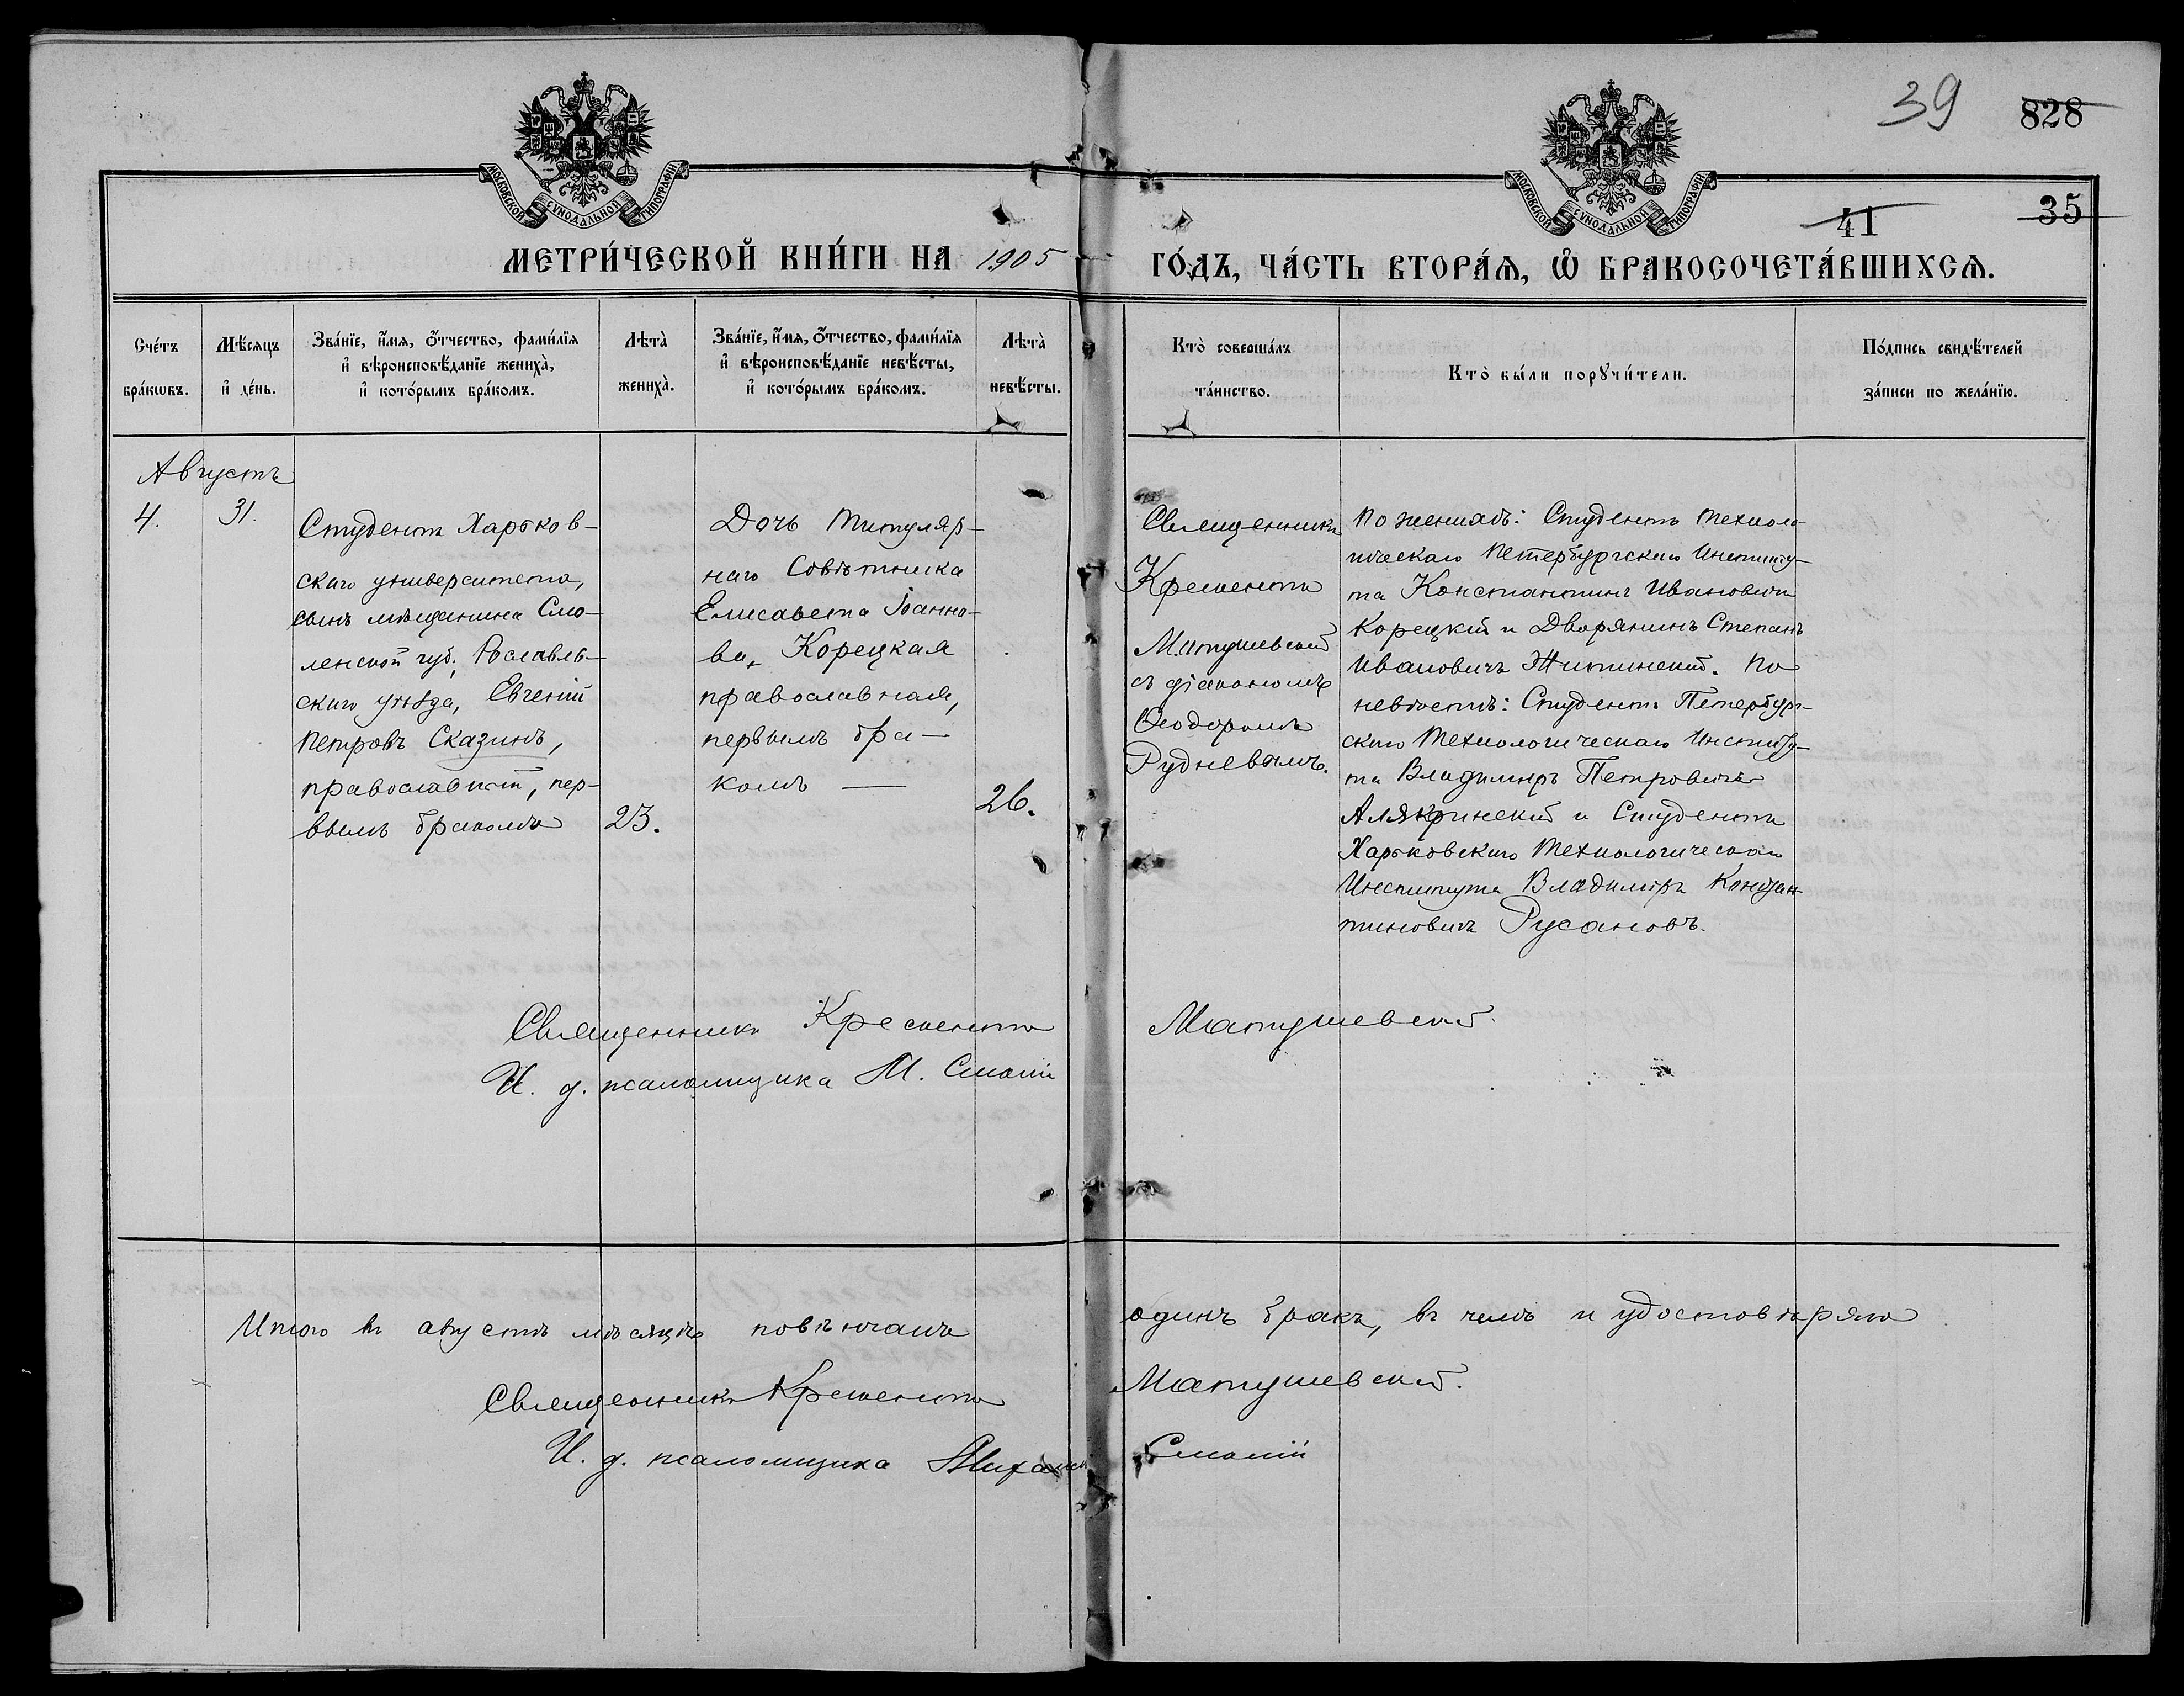 39 828
МОСКОВСКОЙ СѴНОДАЛЬНОЙ ТИПОГРАФІИ
МОСКОВСКОЙ СѴНОДАЛЬНОЙ ТИПОГРАФІИ
41 35
МЕТРИ́ЧЕСКОЙ КНИ́ГИ НА 1905 ГО́ДЪ, ЧА́СТЬ ВТОРА́Я, Ѡ҆ БРАКОСОЧЕТА́ВШИХСЯ.
Сче́тъ
бра́кѡвъ.
Мѣ́сяцъ
и҆ де́нь.
Зва́нїе, и҆́мя, ѻ҆́тчество, фами́лїя
и҆ вѣроисповѣ́данїе жениха̀,
и҆ кото́рымъ бра́комъ.
Лѣта̀
жениха̀.
Зва́нїе, и҆́мя, ѻ҆́тчество, фами́лїя
и҆ вѣроисповѣ́данїе невѣ́сты,
и҆ кото́рымъ бра́комъ.
Лѣта̀
невѣ́сты.
Кто̀ соверша́лъ
та́инство.
Кто̀ бы́ли порꙋчи́тели.
По́дпись свидѣ́телей
за́писи по жела́нїю.
Августъ
4.
31.
Студентъ Харьков-
скаго университета,
сынъ мѣщанина Смо-
ленской губ., Рославль-
скаго уѣзда, Евгеній
Петровъ Сказинъ,
православный, пер-
вымъ бракомъ
23.
Дочь Титуляр-
наго Совѣтника
Елисавета Іоанно-
ва, Корецкая
православная,
первымъ бра-
комъ —
26.
Священникъ
Крискентъ
Матушевскій
съ діакономъ
Ѳеодоромъ
Рудневымъ.
По женихѣ: Студентъ Техноло-
гическаго Петербургскаго Институ-
та Константинъ Ивановичъ
Корецкій и Дворянинъ Степанъ
Ивановичъ Житинскій. По
невѣстѣ: Студентъ Петербург-
скаго Технологическаго Институ-
та Владимиръ Петровичъ
Алякринскій и Студентъ
Харьковскаго Технологическаго
Института Владимиръ Констан-
тиновичъ Русановъ.
Священникъ Крискентъ Матушевскій.
И. д. псаломщика М. Смолій
Итого въ августѣ мѣсяцѣ повѣнчанъ одинъ бракъ, въ чемъ и удостовѣряю
Священникъ Крискентъ Матушевскій.
И. д. псаломщика Михаилъ Смолій